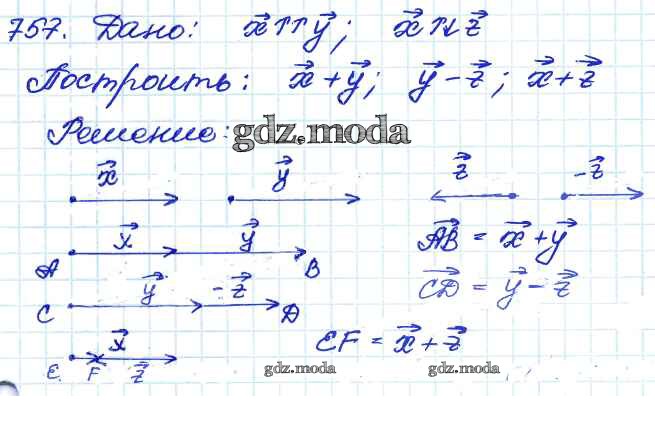 757. Дано: x⃗↑↑y⃗; x⃗↑↓z⃗
Построить: x⃗+y⃗; y⃗-z⃗; x⃗+z⃗
Решение: gdz.moda
x⃗ y⃗ z⃗ -z⃗
x⃗ y⃗ AB⃗ = x⃗+y⃗
A B
y⃗ -z⃗ CD⃗ = y⃗-z⃗
C D
x⃗ EF = x⃗+z⃗
E. F z⃗ gdz.moda gdz.moda